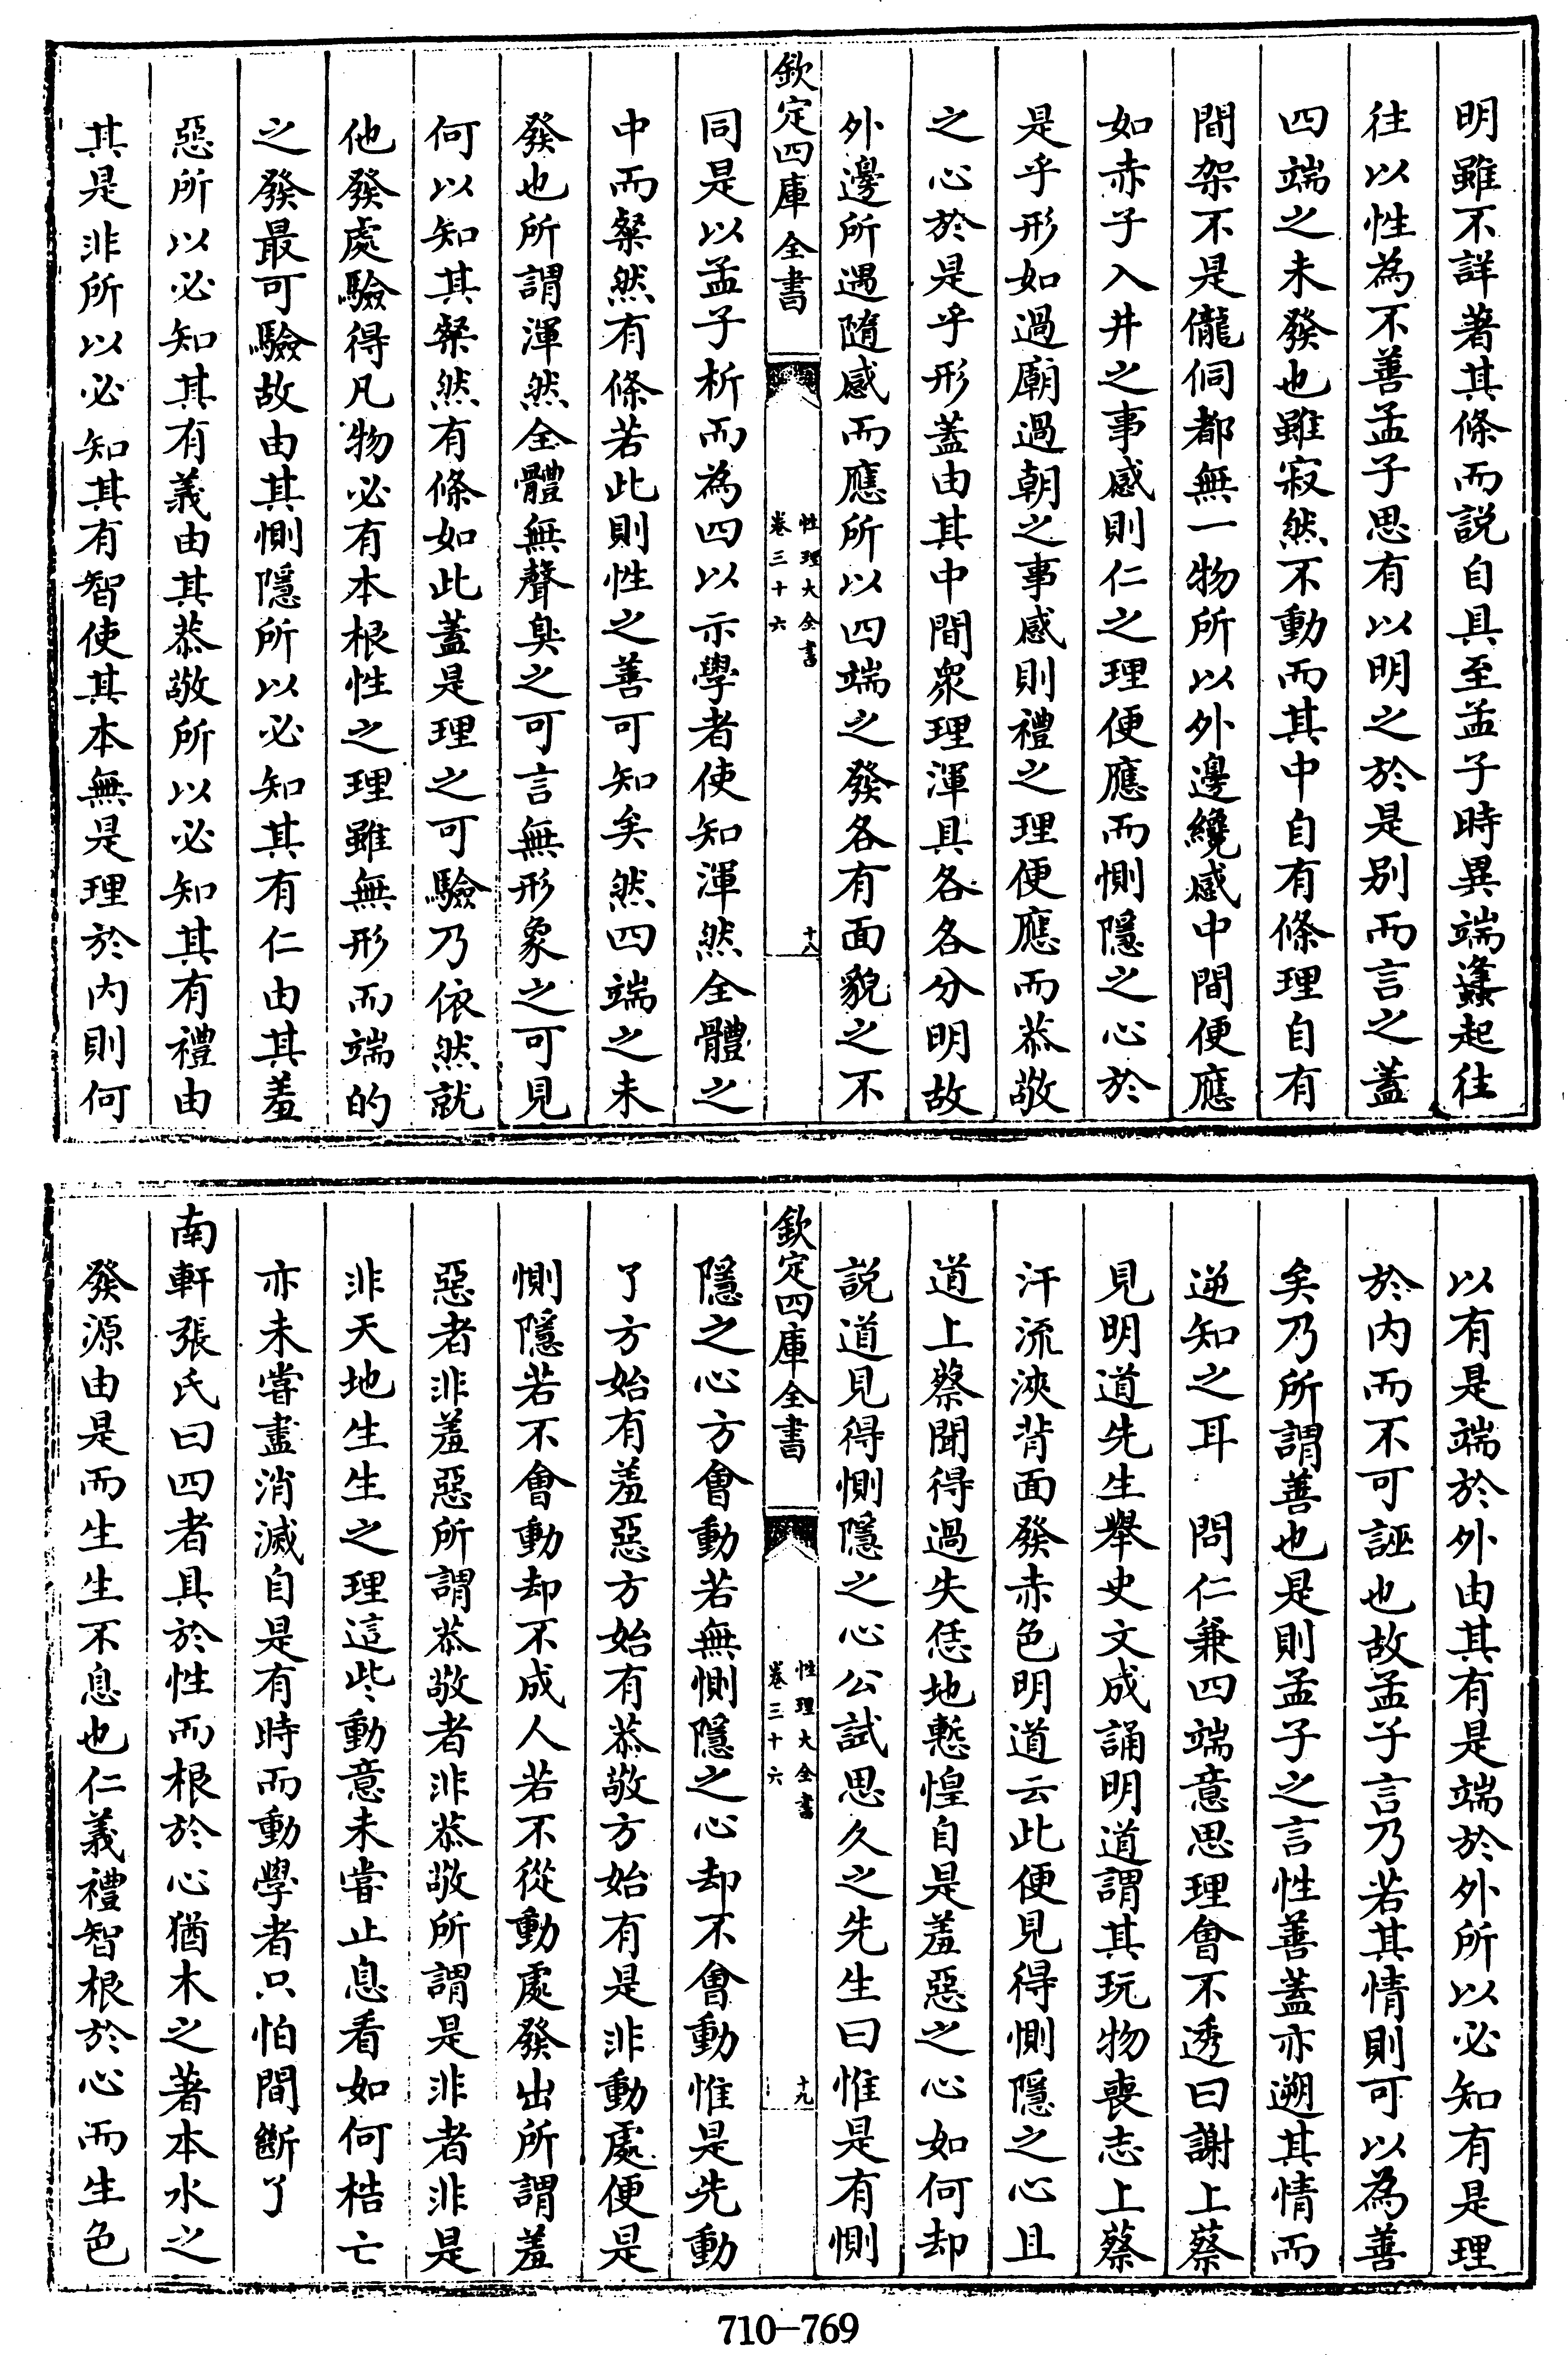 明雖不詳著其條而説自具至孟子時異端蠭起往
往以性為不善孟子思有以明之於是别而言之蓋
四端之未發也雖寂然不動而其中自有條理自有
間架不是儱侗都無一物所以外邊纔感中間便應
如赤子入井之事感則仁之理便應而惻隱之心於
是乎形如過廟過朝之事感則禮之理便應而恭敬
之心於是乎形蓋由其中間衆理渾具各各分明故
外邊所遇隨感而應所以四端之發各有面貌之不
欽定四庫全書
性理大全書
卷三十六
十八
同是以孟子析而為四以示學者使知渾然全體之
中而粲然有條若此則性之善可知矣然四端之未
發也所謂渾然全體無聲臭之可言無形象之可見
何以知其粲然有條如此蓋是理之可驗乃依然就
他發處驗得凡物必有本根性之理雖無形而端的
之發最可驗故由其惻隱所以必知其有仁由其羞
惡所以必知其有義由其恭敬所以必知其有禮由
其是非所以必知其有智使其本無是理於内則何
以有是端於外由其有是端於外所以必知有是理
於内而不可誣也故孟子言乃若其情則可以為善
矣乃所謂善也是則孟子之言性善蓋亦遡其情而
逆知之耳 問仁兼四端意思理會不透曰謝上蔡
見明道先生舉史文成誦明道謂其玩物喪志上蔡
汗流浹背面發赤色明道云此便見得惻隱之心且
道上蔡聞得過失恁地慙惶自是羞惡之心如何却
説道見得惻隱之心公試思久之先生曰惟是有惻
欽定四庫全書
性理大全書
卷三十六
十九
隱之心方會動若無惻隱之心却不會動惟是先動
了方始有羞惡方始有恭敬方始有是非動處便是
惻隱若不會動却不成人若不從動處發出所謂羞
惡者非羞惡所謂恭敬者非恭敬所謂是非者非是
非天地生生之理這些動意未嘗止息看如何梏亡
亦未嘗盡消滅自是有時而動學者只怕間斷了
南軒張氏曰四者具於性而根於心猶木之著本水之
發源由是而生生不息也仁義禮智根於心而生色
710-769